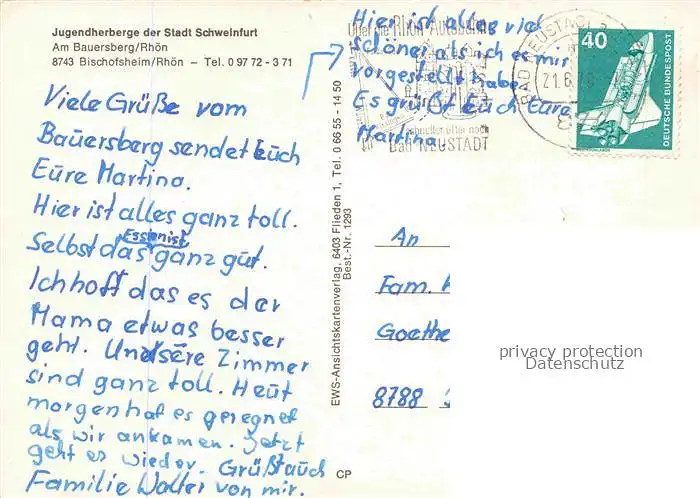 Jugendherberge der Stadt Schweinfurt
Am Bauersberg/Rhön
8743 Bischofsheim/Rhön - Tel. 0 97 72 - 3 71
Viele Grüße vom
Bauersberg sendet Euch
Eure Martina.
Hier ist alles ganz toll.
Selbst das Essen ist ganz gut.
Ich hoff das es der
Mama etwas besser
geht. Unsere Zimmer
sind ganz toll. Heut
morgen hat es geregnet
als wir ankamen. Jetzt
geht es wieder. Grüßt auch
Familie Walter von mir.
Hier ist alles viel
schöner als ich es mir
vorgestellt habe.
Es grüßt Euch Eure
Martina.
Über die Rhön-Autobahn
schneller öfter nach
Bad NEUSTADT
BAD NEUSTADT
21.6.
40
DEUTSCHE BUNDESPOST
EWS-Ansichtskartenverlag, 6403 Flieden 1, Tel. 0 66 55 - 14 50
Best.-Nr. 1293
An
Fam.
Goethe
8788
privacy protection
Datenschutz
CP